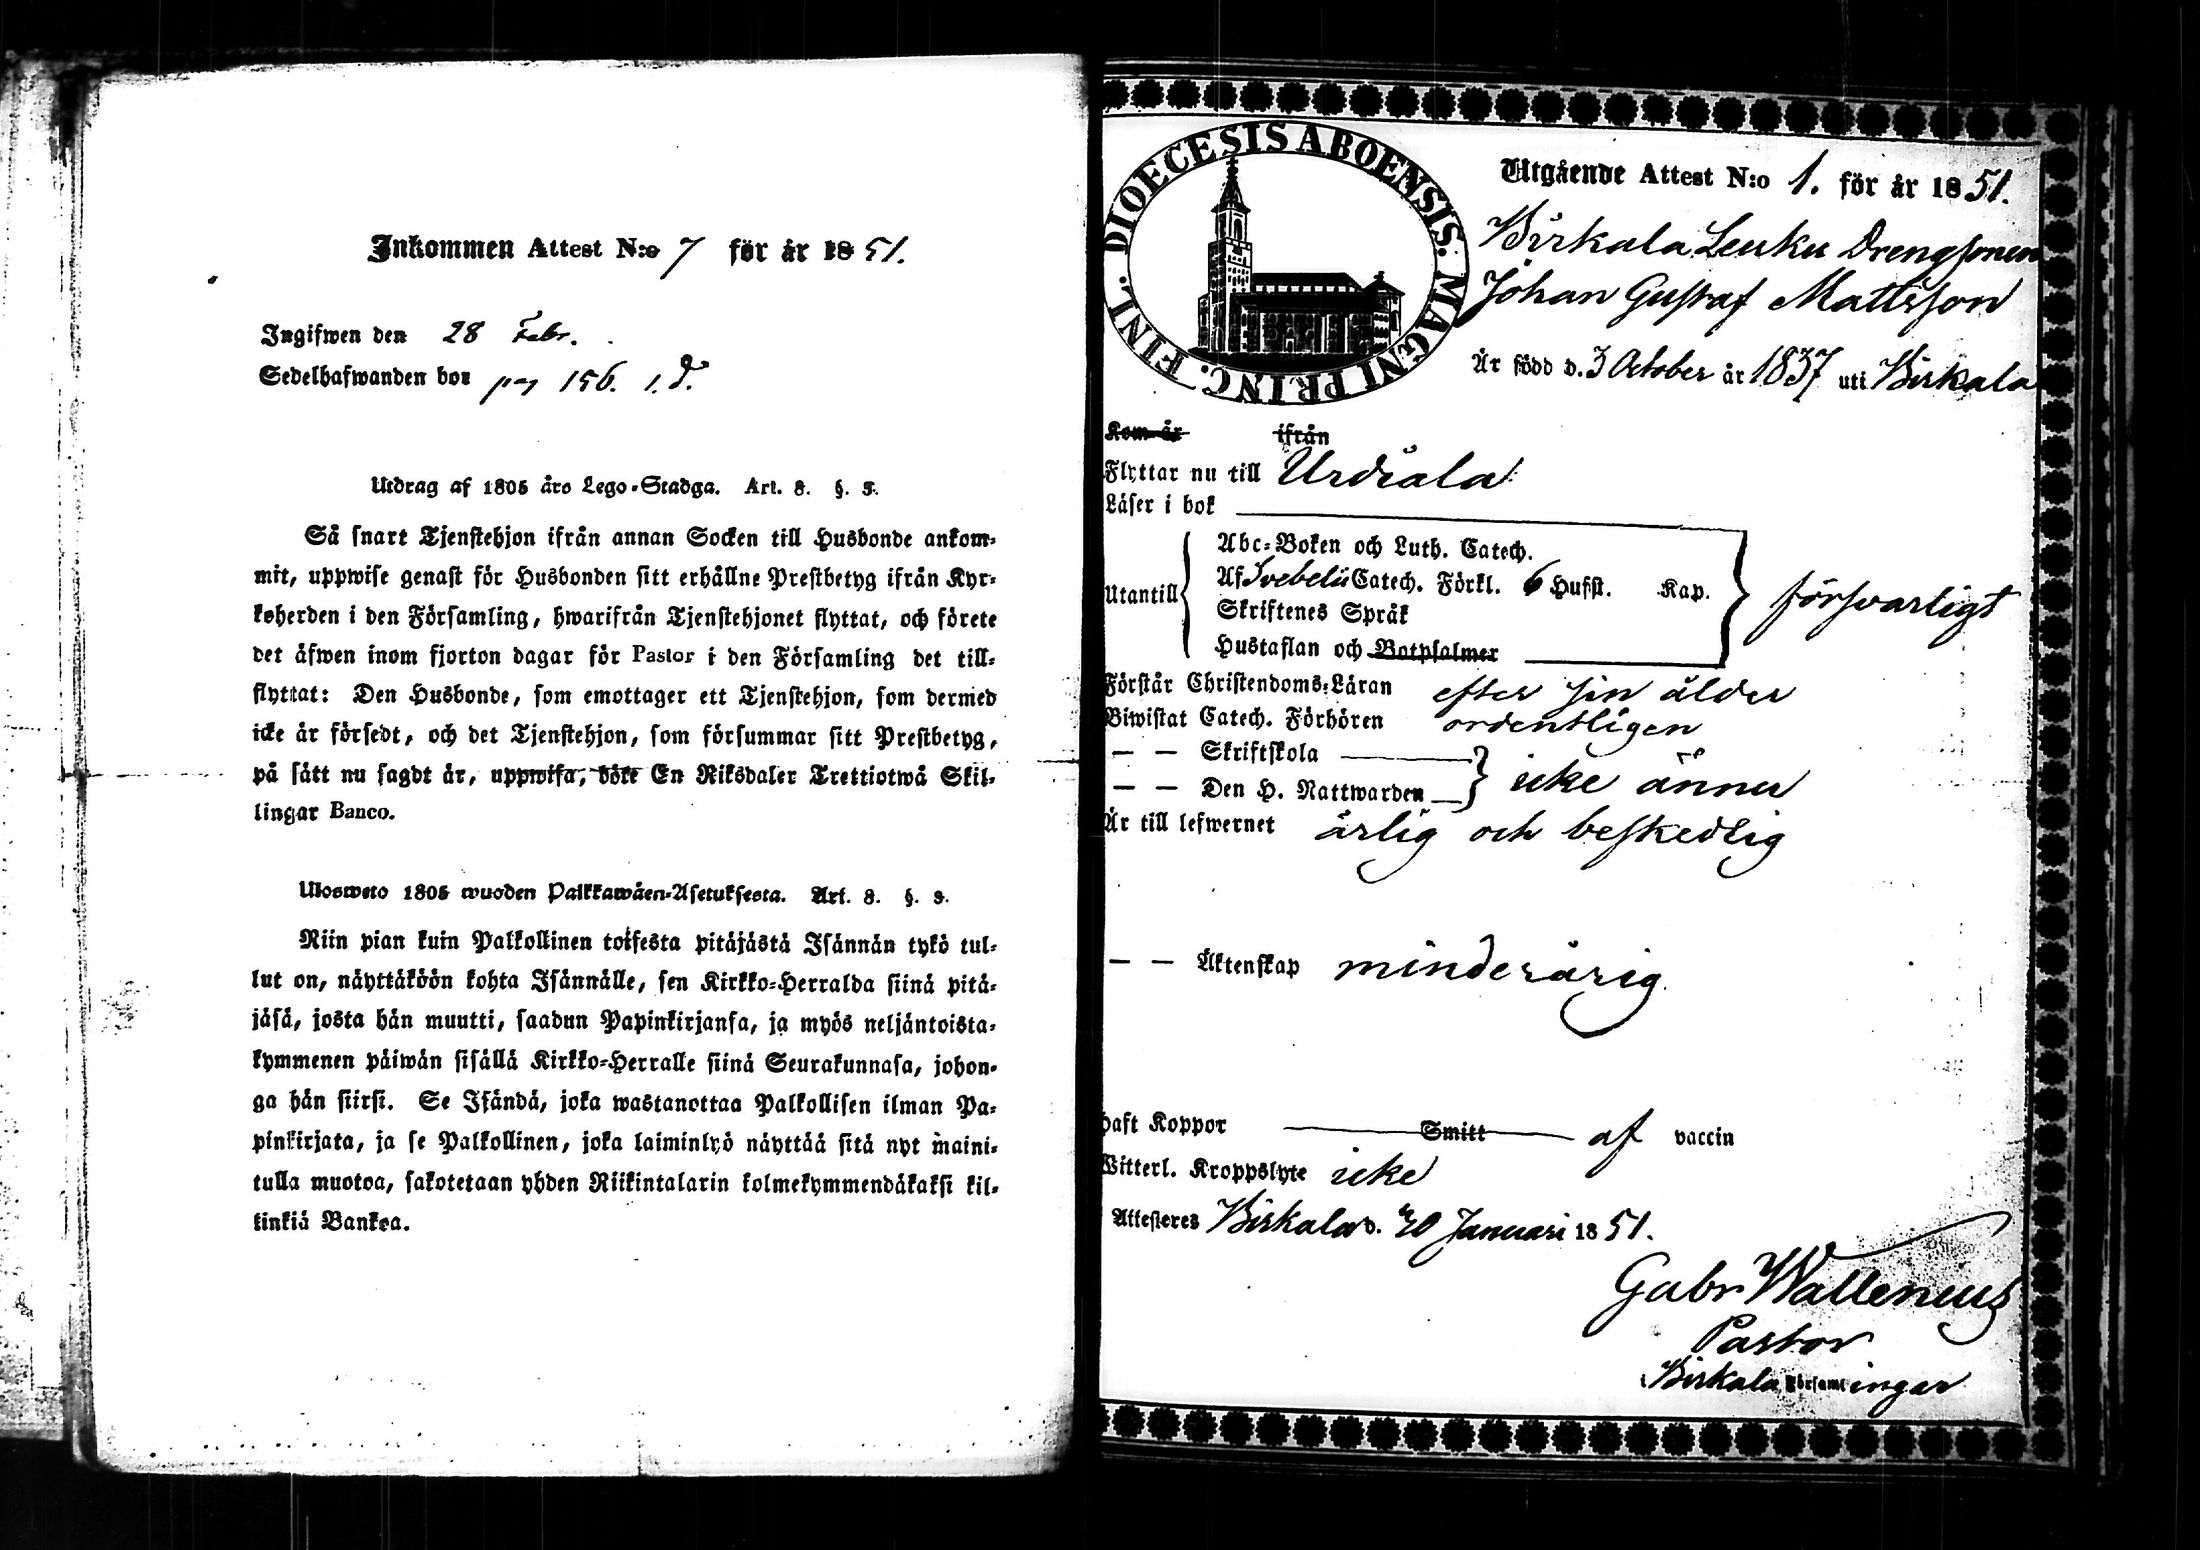 Inkommen Attest N:o 7 för år 1851.
Ingifwen den 28 Febr.
Sedelhafwanden bor pag 156. 1. d.
Utdrag af 1805 års Lego-Stadga. Art. 8. §. 3.
Så snart Tjenstehjon ifrån annan Socken till Husbonde ankom-
mit, uppwise genast för Husbonden sitt erhållne Prestbetyg ifrån Kyr-
koherden i den Församling, hwarifrån Tjenstehjonet flyttat, och förete
det äfwen inom fjorton dagar för Pastor i den Församling det till-
flyttat: Den Husbonde, som emottager ett Tjenstehjon, som dermed
icke är försedt, och det Tjenstehjon, som försummar sitt Prestbetyg,
på sätt nu sagdt är, uppwisa, böte En Riksdaler Trettiotwå Skil-
lingar Banco.
Ulosweto 1805 wuoden Palkkawäen-Asetuksesta. Art. 8. §. 3.
Niin pian kuin Palkollinen toisesta pitäjästä Isännän tykö tul-
lut on, näyttäköön kohta Isännälle, sen Kirkko-Herralda siinä pitä-
jäsä, josta hän muutti, saadun Papinkirjansa, ja myös neljäntoista-
kymmenen päiwän sisällä Kirkko-Herralle siinä Seurakunnasa, johon-
ga hän siirsi. Se Isändä, joka wastanottaa Palkollisen ilman Pa-
pinkirjata, ja se Palkollinen, joka laiminlyö näyttää sitä nyt maini-
tulla muotoa, sakotetaan yhden Riikintalarin kolmekymmendäkaksi kil-
linkiä Bankoa.
DIOECESIS ABOENSIS. MAGNI PRINC. FINL.
Utgående Attest N:o 1. för år 1851.
Birkala Leuku Drengsonen
Johan Gustaf Mattsson
Är född d. 3 October år 1837 uti Birkala
Kom år ifrån
Flyttar nu till Urdiala
Läser i bok
Abc-Boken och Luth. Catech.
Utantill Af Svebelii Catech. Förkl. 6 Hufst. Kap. försvarligt
Skriftenes Språk
Hustaflan och Botpsalmer
Förstår Christendoms-Läran efter sin ålder
Biwistat Catech. Förhören ordentligen
— — Skriftskola
— — Den H. Nattwarden icke ännu
Är till lefwernet ärlig och beskedlig
— — Äktenskap minderårig
Haft Koppor Smitt af vaccin
Witterl. Kroppslyte icke
Attesteres Birkala d. 20 Januari 1851.
Gabr Wallenius
Pastor
i Birkala Församlingar